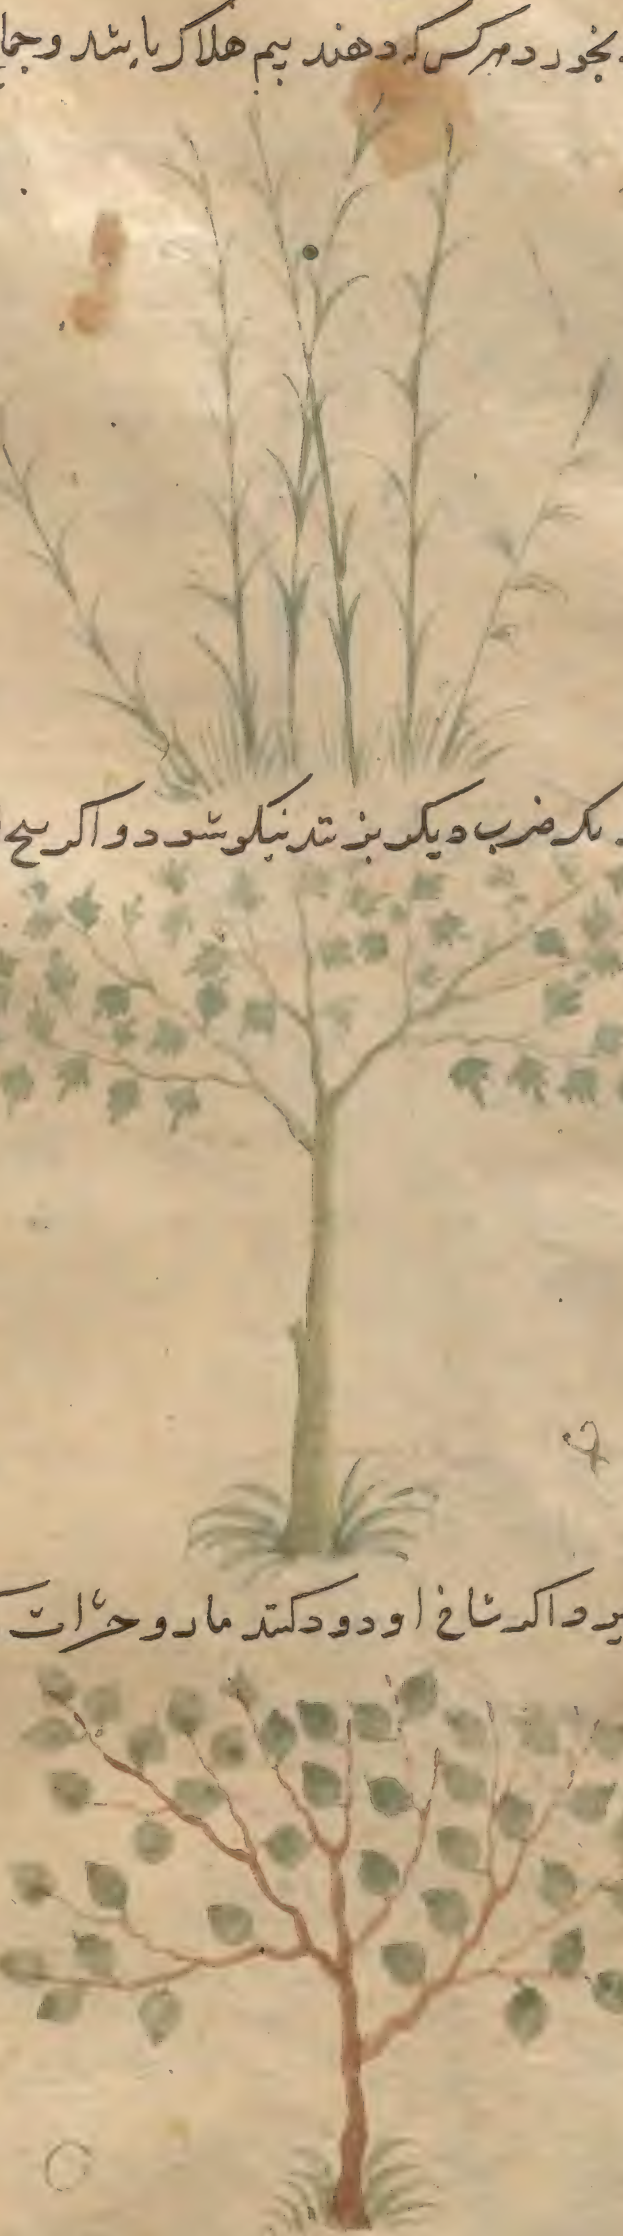 بخورد هرکس که دهند بیم هلاک باشد و جما
یک ضرب دیگر بزنند نیکو شود و اگر بیخ
و اگر شاخ او دود کنند مار و حشرات